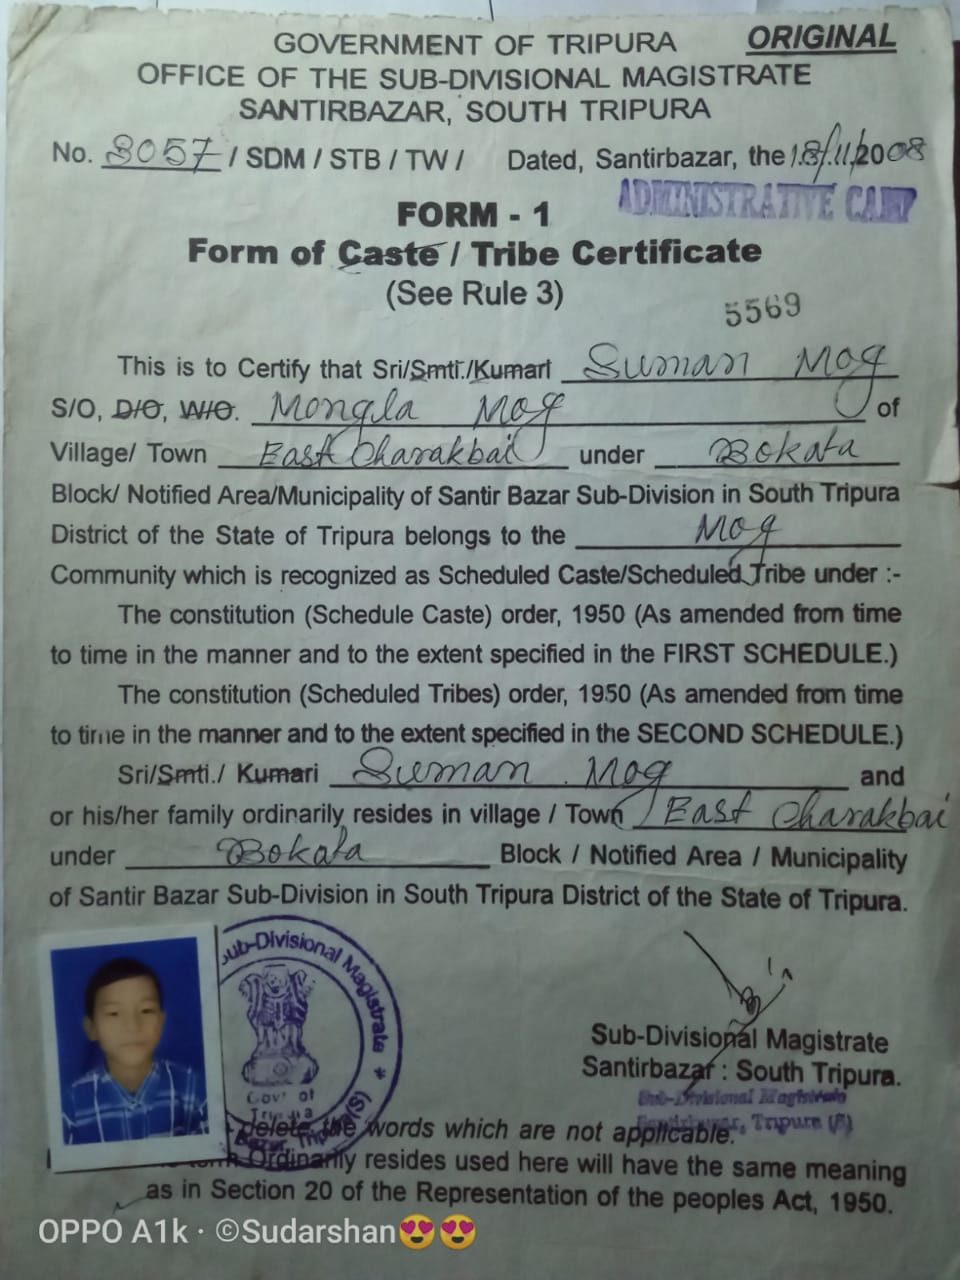 ORIGINAL
GOVERNMENT OF TRIPURA
OFFICE OF THE SUB-DIVISIONAL MAGISTRATE
SANTIRBAZAR, SOUTH TRIPURA
No. 3057 / SDM / STB / TW / Dated, Santirbazar, the 18/11/2008
ADMINISTRATIVE CAMP
FORM - 1
Form of Caste / Tribe Certificate
(See Rule 3)
5569
This is to Certify that Sri/Smti./Kumari Suman Mog
S/O, D/O, W/O. Mongla Mog of
Village/ Town East Charakbai under Bokafa
Block/ Notified Area/Municipality of Santir Bazar Sub-Division in South Tripura
District of the State of Tripura belongs to the Mog
Community which is recognized as Scheduled Caste/Scheduled Tribe under :-
The constitution (Schedule Caste) order, 1950 (As amended from time
to time in the manner and to the extent specified in the FIRST SCHEDULE.)
The constitution (Scheduled Tribes) order, 1950 (As amended from time
to time in the manner and to the extent specified in the SECOND SCHEDULE.)
Sri/Smti./ Kumari Suman Mog and
or his/her family ordinarily resides in village / Town East Charakbai
under Bokafa Block / Notified Area / Municipality
of Santir Bazar Sub-Division in South Tripura District of the State of Tripura.
Sub-Divisional Magistrate *
Govt of
Tripura
Bazar, Tripura(S)
Sub-Divisional Magistrate
Santirbazar : South Tripura.
Sub-Divisional Magistrate
Santirbazar, Tripura (S)
Delete the words which are not applicable.
Ordinarily resides used here will have the same meaning
as in Section 20 of the Representation of the peoples Act, 1950.
OPPO A1k · ©Sudarshan😍😍